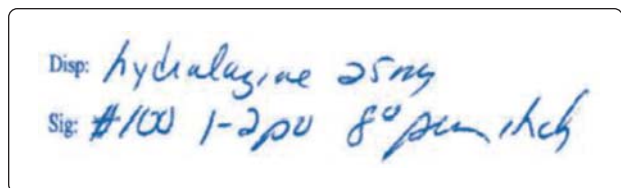 Disp: hydralazine 25mg
Sig: #100 1-2 po 8° prn itch